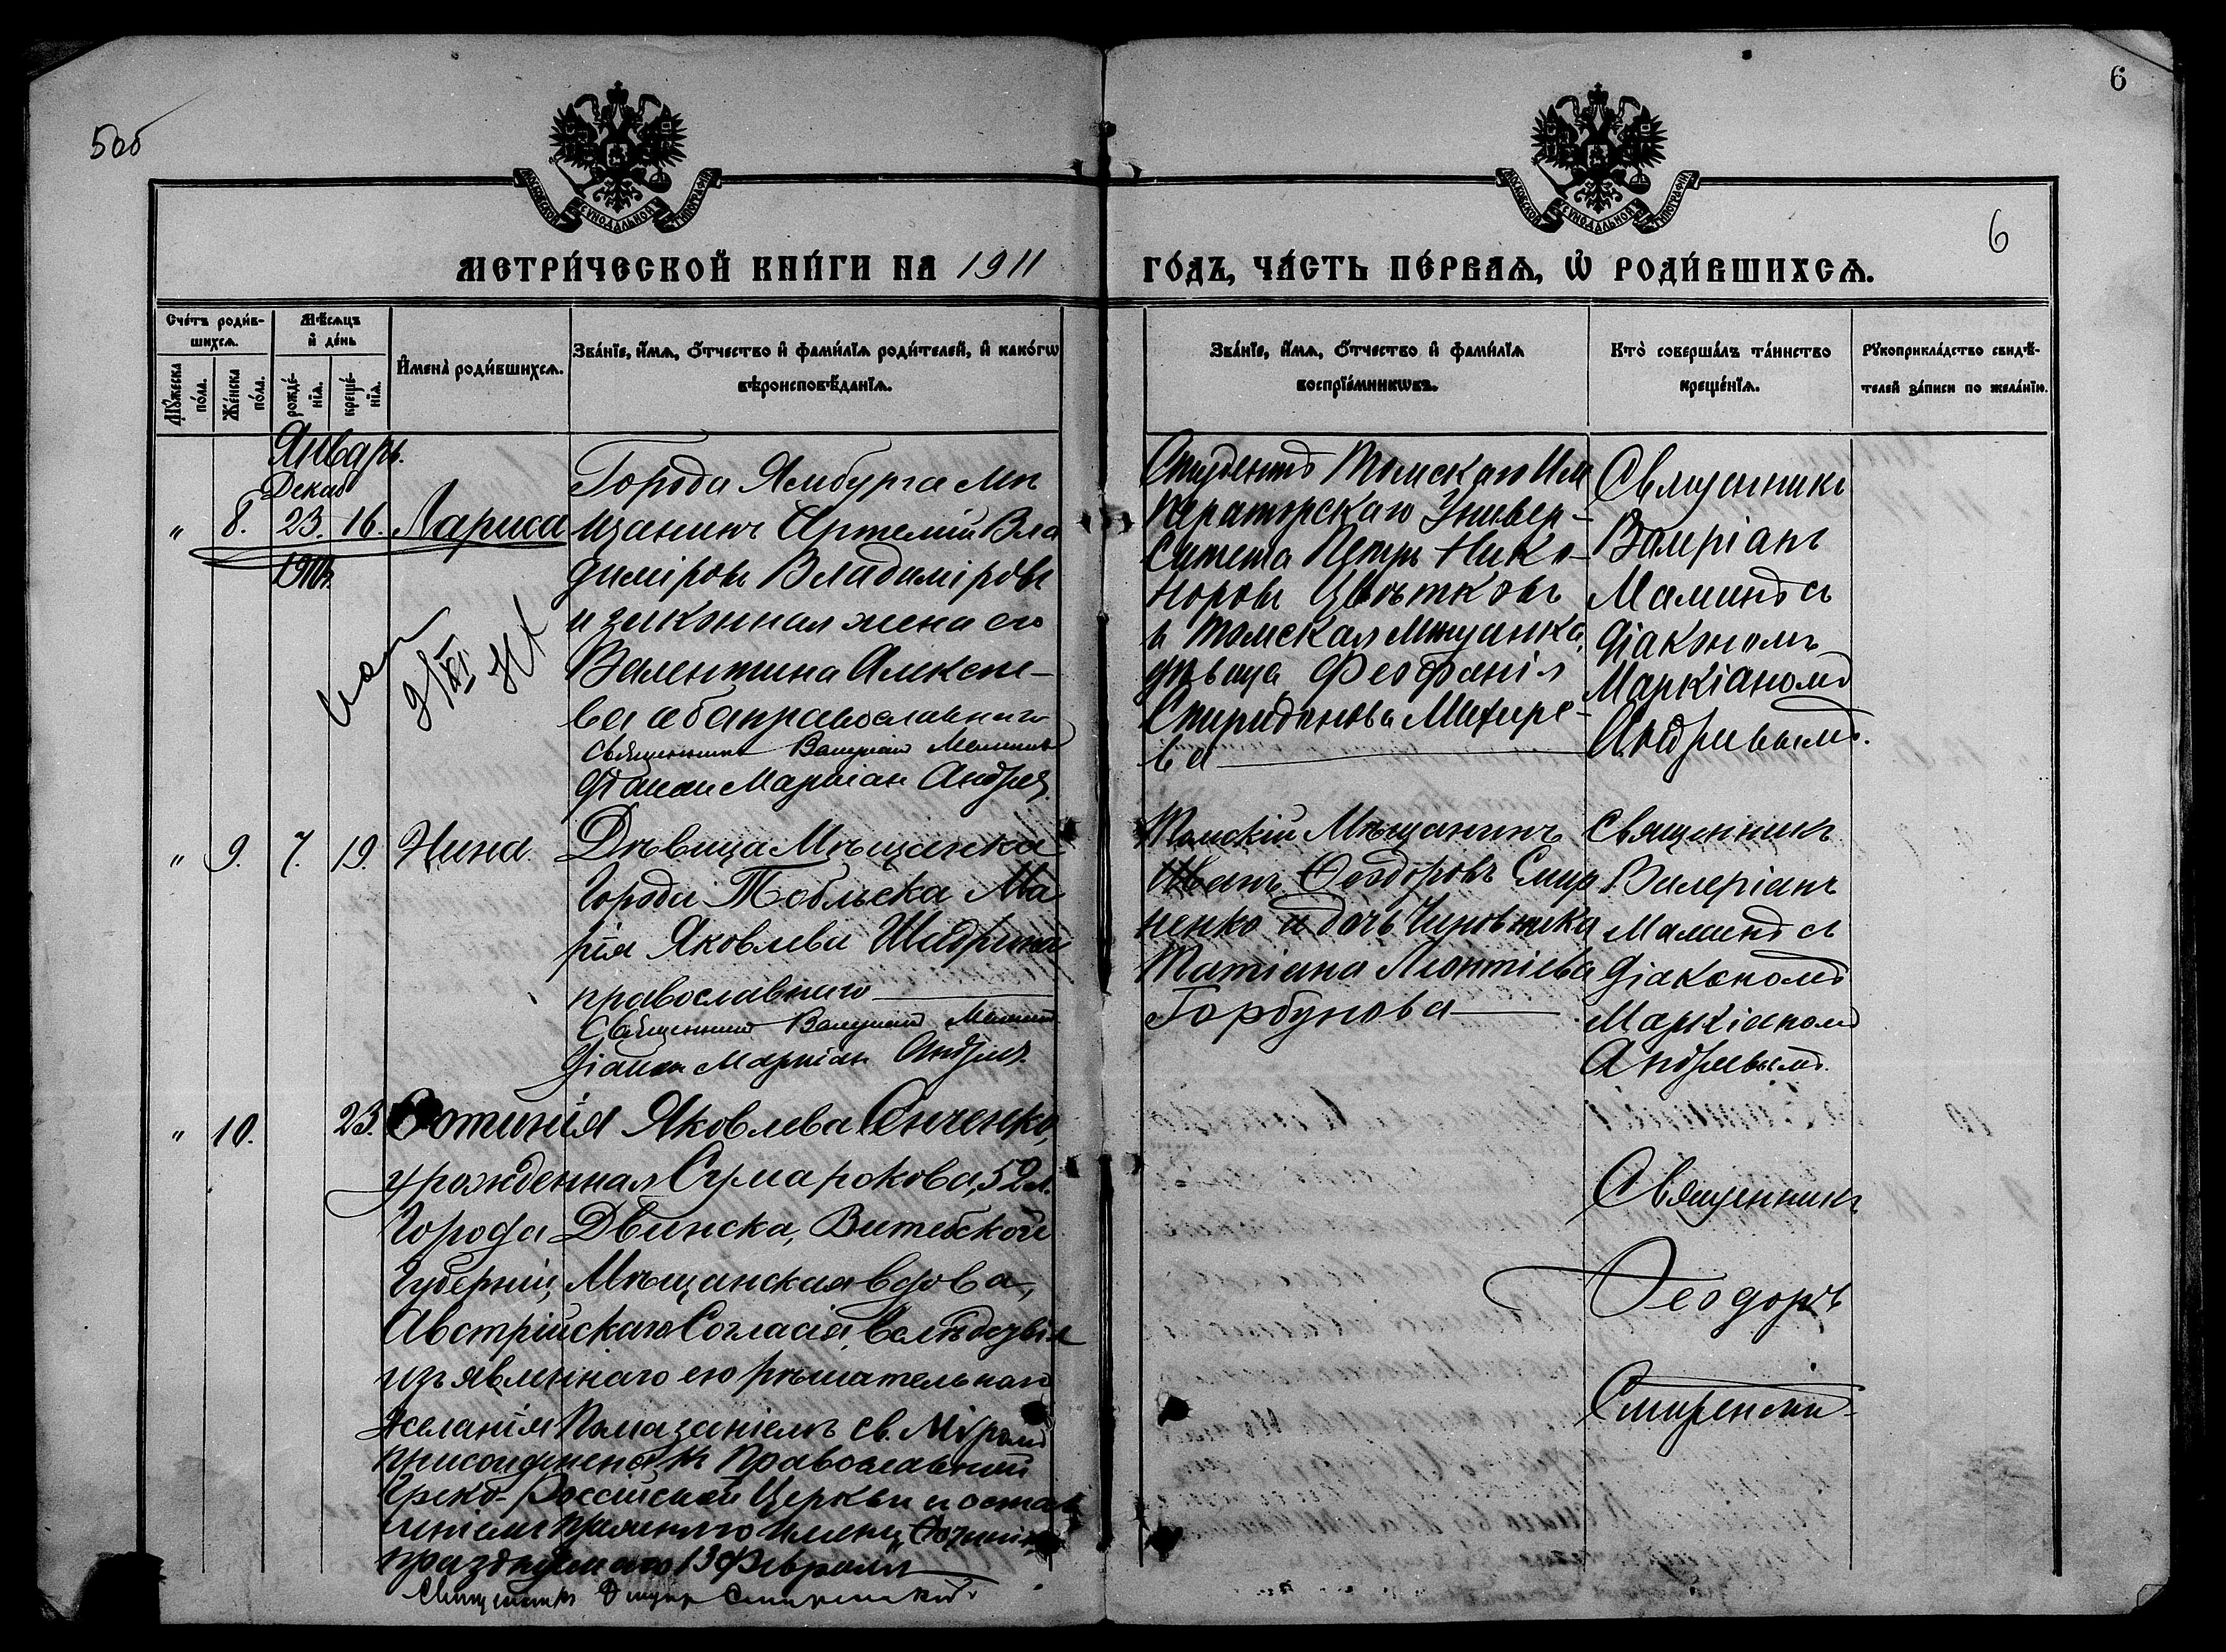 5об
6
МОСКОВСКОЙ СѴНОДАЛЬНОЙ ТИПОГРАФІИ
МОСКОВСКОЙ СѴНОДАЛЬНОЙ ТИПОГРАФІИ
6
МЕТРИ́ЧЕСКОЙ КНИ́ГИ НА 1911
ГО́ДЪ, ЧА́СТЬ ПЕ́РВАѦ, Ѽ РОДИ́ВШИХСѦ.
Сче́тъ роди́в-
шихсѧ.
Мꙋ́жеска
по́ла.
Же́нска
по́ла.
Мѣ́сѧцъ
и҆ де́нь
рожде́-
нїѧ.
креще́-
нїѧ.
И҆мена̀ роди́вшихсѧ.
Зва́нїе, и҆́мѧ, ѻ҆́тчество и҆ фами́лїѧ роди́телей, и҆ како́гѡ
вѣроисповѣ́данїѧ.
Зва́нїе, и҆́мѧ, ѻ҆́тчество и҆ фами́лїѧ
воспрїе́мникѡвъ.
Кто̀ соверша́лъ та́инство
креще́нїѧ.
Рꙋкоприкла́дство свидѣ́-
телей за́писи по жела́нїю.
Январь.
Декаб
" 8. 23. 16. Лариса
1910г.
Города Ямбурга мѣ
щанинъ Артемій Вла
диміровъ Владиміровъ
и законная жена его
Валентина Алексѣе-
ва оба православнаго
Священникъ Валеріанъ Маминъ
Діаконъ Маркіанъ Андреев
Студентъ Томскаго Им
ператорскаго Универ-
ситета Петръ Нико-
норовъ Цвѣтковъ
и Томская Мѣщанка,
дѣвица Феофанія
Спиридонова
ва
Священникъ
Валеріанъ
Маминъ съ
діакономъ
Маркіаномъ
Андреевымъ.
" 9. 7. 19. Нина.
Дѣвица Мѣщанка
Города Тобольска Ма
рія Яковлева Шадрина
православнаго
Священникъ Валеріанъ Маминъ
Діаконъ Маркіанъ Андреев
Томскій Мѣщанинъ
Иванъ Ѳеодоровъ Смир
ненко и дочь Чиновника
Татіана Леонтіева
Горбунова
Священникъ
Валеріанъ
Маминъ съ
Діакономъ
Маркіаномъ
Андреевымъ.
" 10. 23. Фотинія Яковлева Сенченко,
урожденная Сумарокова, 52 л.
Города Двинска, Витебской
Губерніи, Мѣщанская вдова,
Австрійскаго Согласія, вслѣдствіе
изъявленнаго ею рѣшительнаго
желанія Помазаніемъ св. Мѵромъ
присоединена къ Православной
Греко-Россійской Церкви и остав
леніемъ прежняго имени
празднуемаго 13 Февраля
Священникъ Ѳеодоръ Смиренскій
Священникъ
Ѳеодоръ
Смиренскій